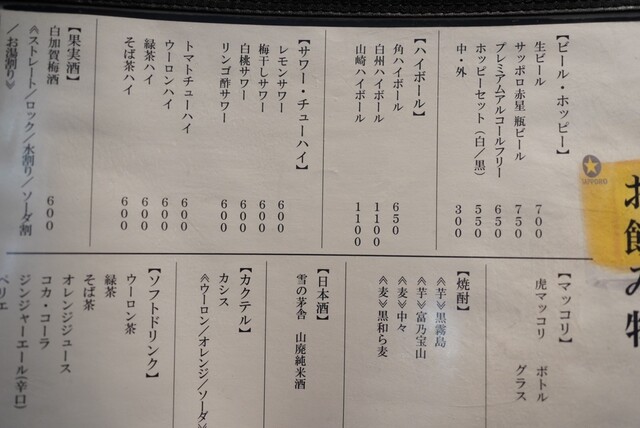 お飲み物
SAPPORO
【ビール・ホッピー】
生ビール 700
サッポロ赤星 瓶ビール 750
プレミアムアルコールフリー 650
ホッピーセット(白/黒) 550
中・外 300
【ハイボール】
角ハイボール 650
白州ハイボール 1100
山崎ハイボール 1100
【サワー・チューハイ】
レモンサワー 600
梅干しサワー 600
白桃サワー 600
リンゴ酢サワー 600
トマトチューハイ 600
ウーロンハイ 600
緑茶ハイ 600
そば茶ハイ 600
【果実酒】
白加賀梅酒 600
《ストレート/ロック/水割り/ソーダ割
/お湯割り》
【マッコリ】
虎マッコリ ボトル
グラス
【焼酎】
《芋》黒霧島
《芋》富乃宝山
《麦》中々
《麦》黒和ら麦
【日本酒】
雪の茅舎 山廃純米酒
【カクテル】
カシス
《ウーロン/オレンジ/ソーダ》
【ソフトドリンク】
ウーロン茶
緑茶
そば茶
オレンジジュース
コカ・コーラ
ジンジャーエール(辛口)
ペリエ